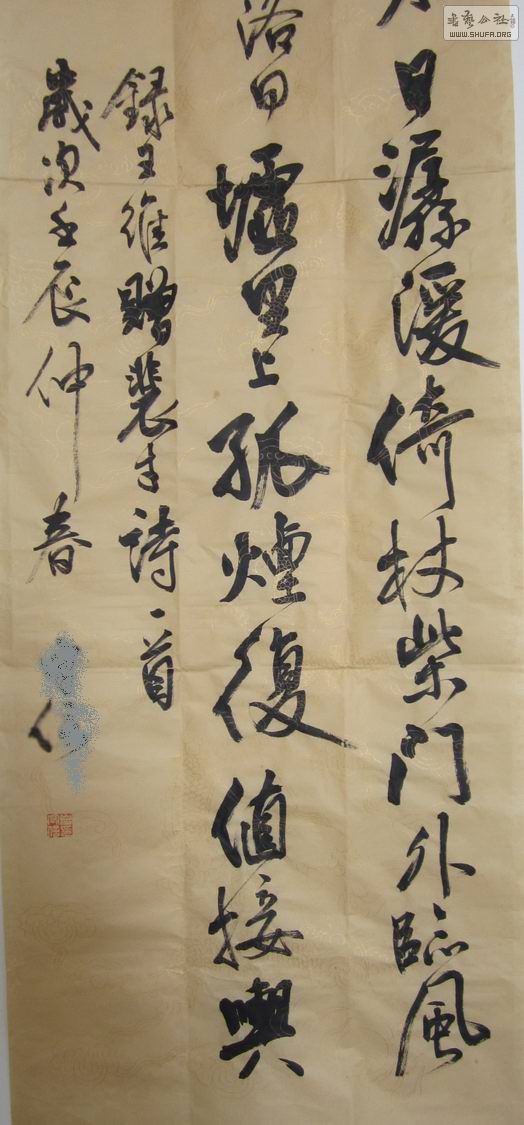 日潺湲倚杖柴門外臨風
落日墟里上孤煙復值接輿
録王維贈裴才詩一首
歲次壬辰仲春
書藝公社
WWW.SHUFA.ORG